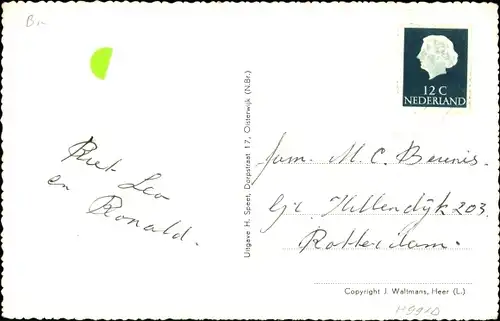 Br.
12 C
NEDERLAND
Riet Leo
en
Ronald.
Uitgave H. Speet, Dorpstraat 17, Oisterwijk (N.Br.)
Fam. M. C. Beunis.
Hillendijk 203
Rotterdam.
Copyright J. Waltmans, Heer (L.)